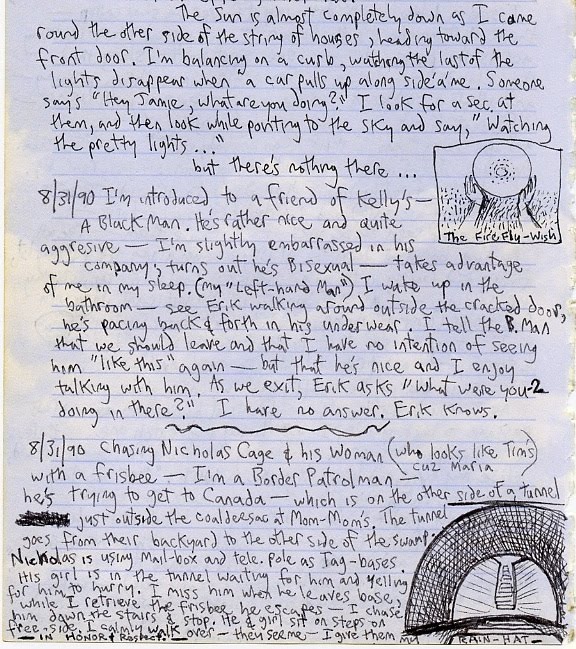 The Sun is almost completely down as I come
round the other side of the string of houses, heading toward the
front door. I'm balancing on a curb, watching the last of the
lights disappear when a car pulls up along side 'a me. Someone
says "Hey Jamie, what are you doing?" I look for a sec. at
them, and then look while pointing to the sky and say, "Watching
the pretty lights..."
but there's nothing there ...
The Fire-Fly-Wish
8/31/90 I'm introduced to a friend of Kelly's —
A Black Man. He's rather nice and quite
aggresive — I'm slightly embarrassed in his
company, turns out he's Bisexual — takes advantage
of me in my sleep. (my "Left-hand Man") I wake up in the
bathroom — see Erik walking around outside the cracked door,
he's pacing back & forth in his underwear. I tell the B. Man
that we should leave and that I have no intention of seeing
him "like this" again — but that he's nice and I enjoy
talking with him. As we exit, Erik asks "What were you 2
doing in there?" I have no answer. Erik knows.
8/31/90 Chasing Nicholas Cage & his Woman (who looks like Tim's
cuz Maria)
with a frisbee — I'm a Border Patrolman —
he's trying to get to Canada — which is on the other side of a tunnel
just outside the coaldeesac at Mom-Mom's. The tunnel
goes from their backyard to the other side of the swamp.
Nicholas is using Mail-box and tele. pole as Tag-bases.
His girl is in the tunnel waiting for him and yelling
for him to hurry. I miss him when he leaves base,
while I retrieve the frisbee, he escapes — I chase
him down the stairs & stop. He & girl sit on steps on
free-side. I calmly walk over — they seeme — I give them my
— IN HONOR & Respect. —
— RAIN-HAT —